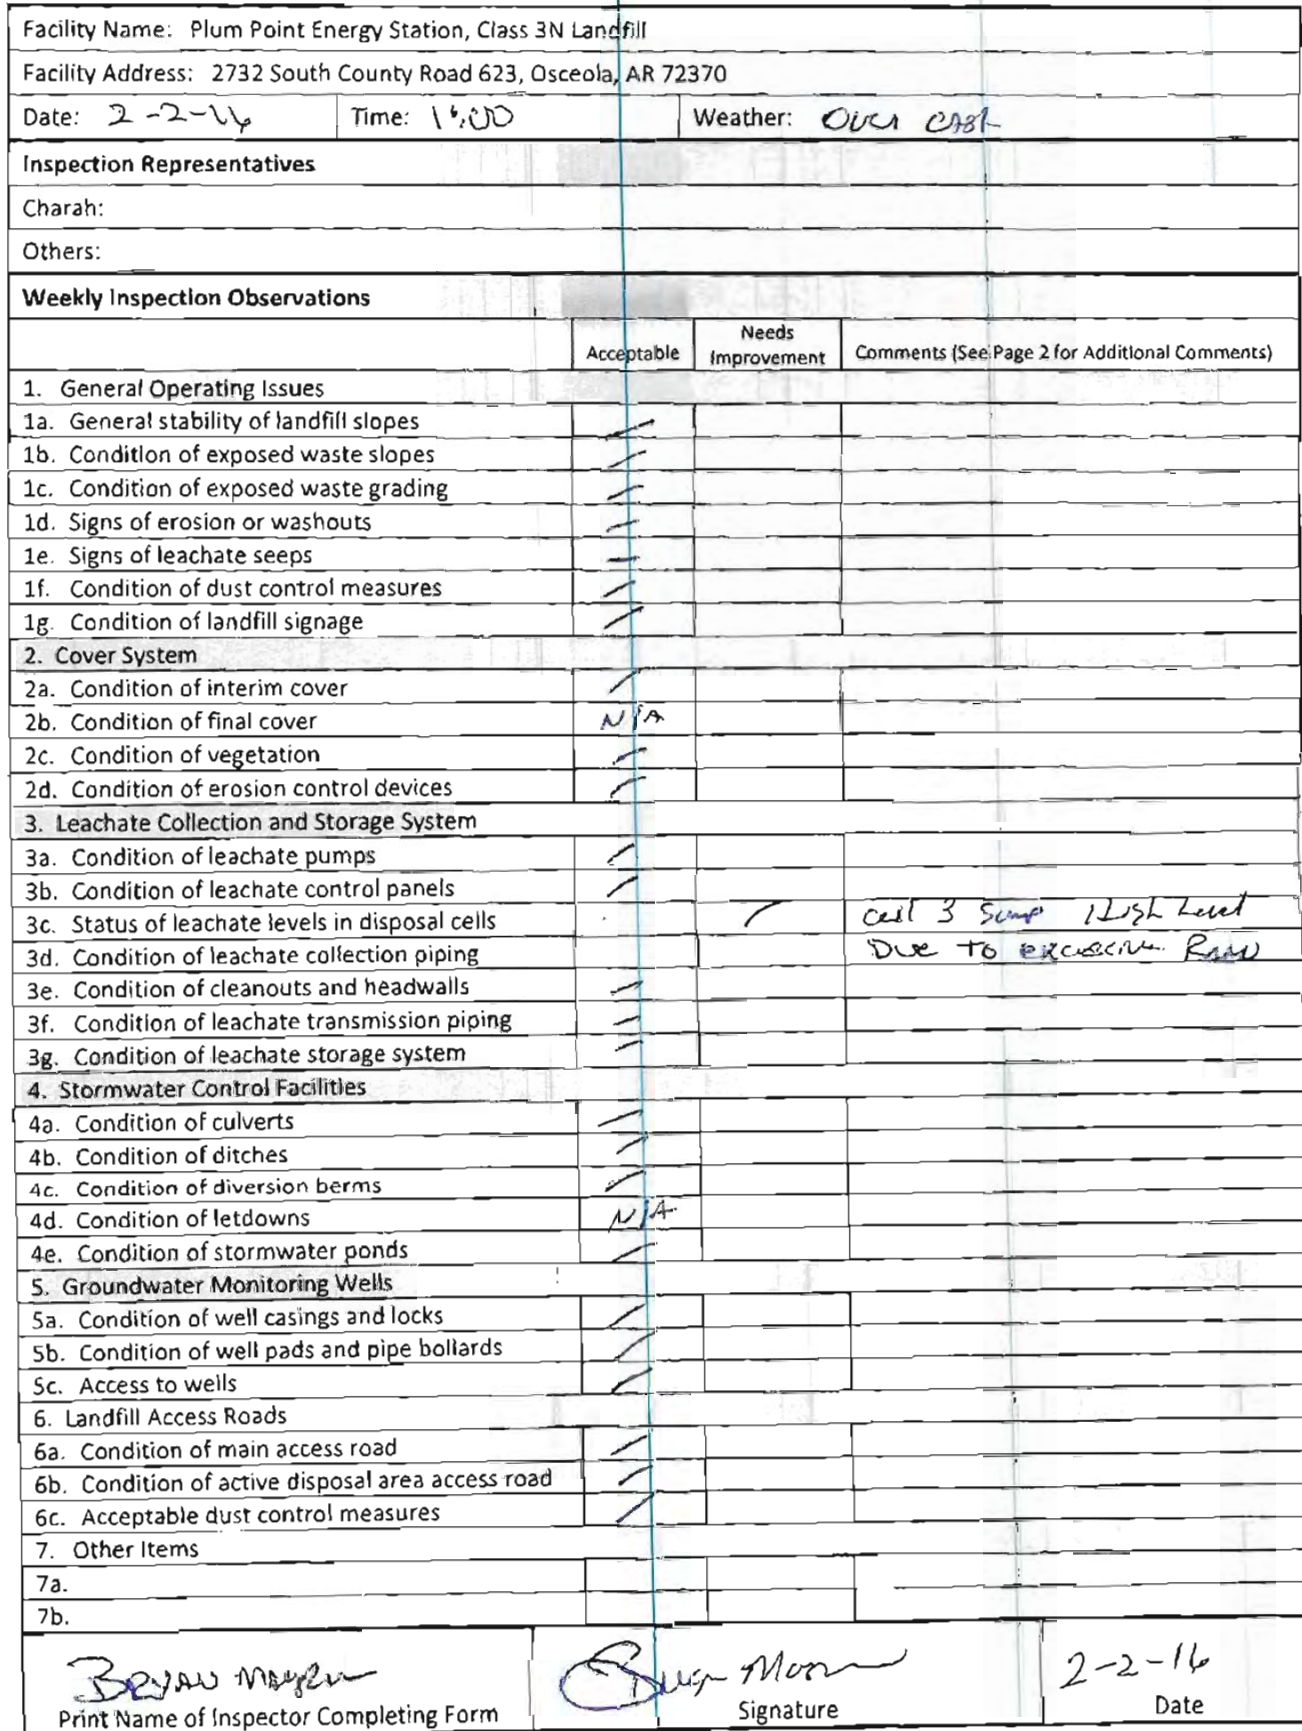 Facility Name: Plum Point Energy Station, Class 3N Landfill
Facility Address: 2732 South County Road 623, Osceola, AR 72370
Date: 2-2-16 Time: Weather: Over cast
Inspection Representatives
Charah:
Others:
Weekly Inspection Observations
Acceptable Needs Improvement Comments (See Page 2 for Additional Comments)
1. General Operating Issues
1a. General stability of landfill slopes
1b. Condition of exposed waste slopes
1c. Condition of exposed waste grading
1d. Signs of erosion or washouts
1e. Signs of leachate seeps
1f. Condition of dust control measures
1g. Condition of landfill signage
2. Cover System
2a. Condition of interim cover
2b. Condition of final cover N/A
2c. Condition of vegetation
2d. Condition of erosion control devices
3. Leachate Collection and Storage System
3a. Condition of leachate pumps
3b. Condition of leachate control panels
3c. Status of leachate levels in disposal cells Cell 3 Sump High Level
3d. Condition of leachate collection piping Due To excessive Rain
3e. Condition of cleanouts and headwalls
3f. Condition of leachate transmission piping
3g. Condition of leachate storage system
4. Stormwater Control Facilities
4a. Condition of culverts
4b. Condition of ditches
4c. Condition of diversion berms
4d. Condition of letdowns N/A
4e. Condition of stormwater ponds
5. Groundwater Monitoring Wells
5a. Condition of well casings and locks
5b. Condition of well pads and pipe bollards
5c. Access to wells
6. Landfill Access Roads
6a. Condition of main access road
6b. Condition of active disposal area access road
6c. Acceptable dust control measures
7. Other Items
7a.
7b.
2-2-16
Print Name of Inspector Completing Form Signature Date